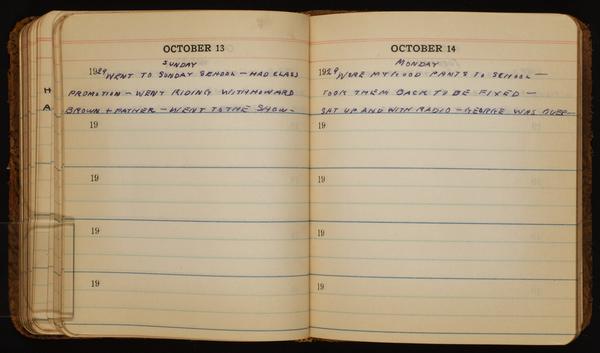 OCTOBER 13
SUNDAY
1929 WENT TO SUNDAY SCHOOL – HAD CLASS
PROMOTION – WENT RIDING WITH HOWARD
BROWN + FATHER – WENT TO THE SHOW –
19
19
19
19
H
A
OCTOBER 14
MONDAY
1929 WORE MY GOOD PANTS TO SCHOOL –
TOOK THEM BACK TO BE FIXED –
SAT UP AND WITH RADIO – GEORGE WAS OVER –
19
19
19
19